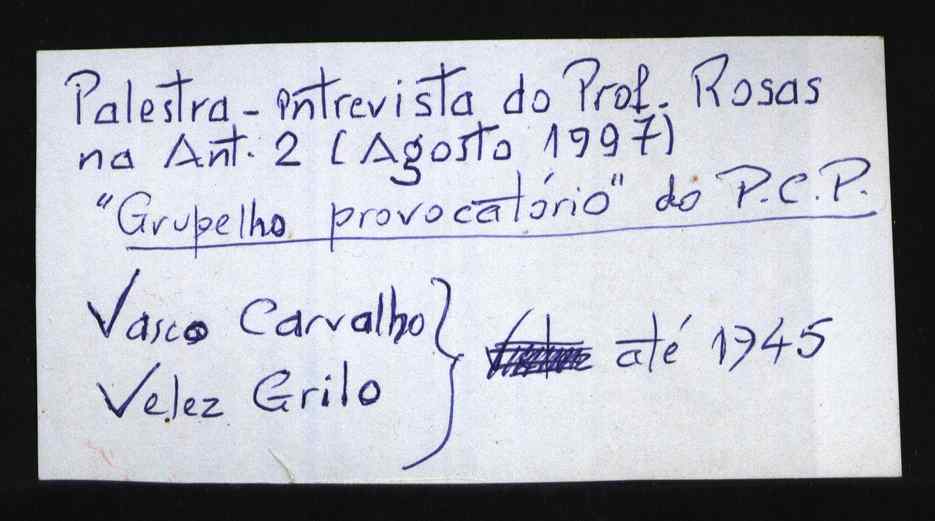 Palestra-entrevista do Prof. Rosas
na Ant. 2 (Agosto 1997)
"Grupelho provocatório" do P.C.P.
Vasco Carvalho } até 1945
Velez Grilo